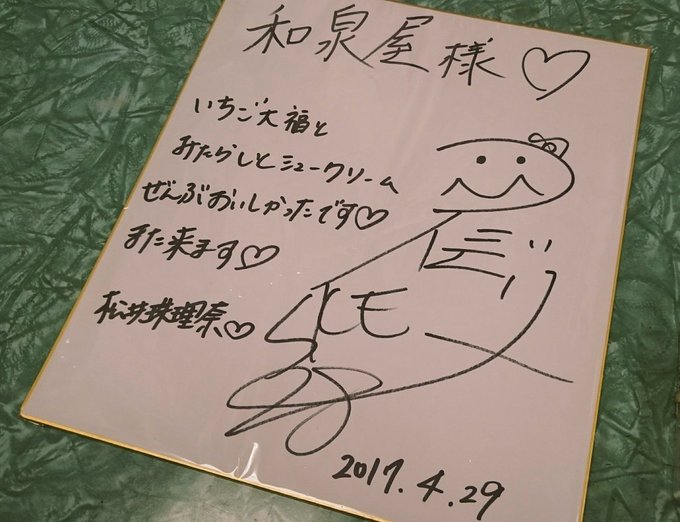 和泉屋様♡
いちご大福と
みたらしとシュークリーム
ぜんぶおいしかったです♡
また来ます♡
松井珠理奈♡
SKE
2017.4.29